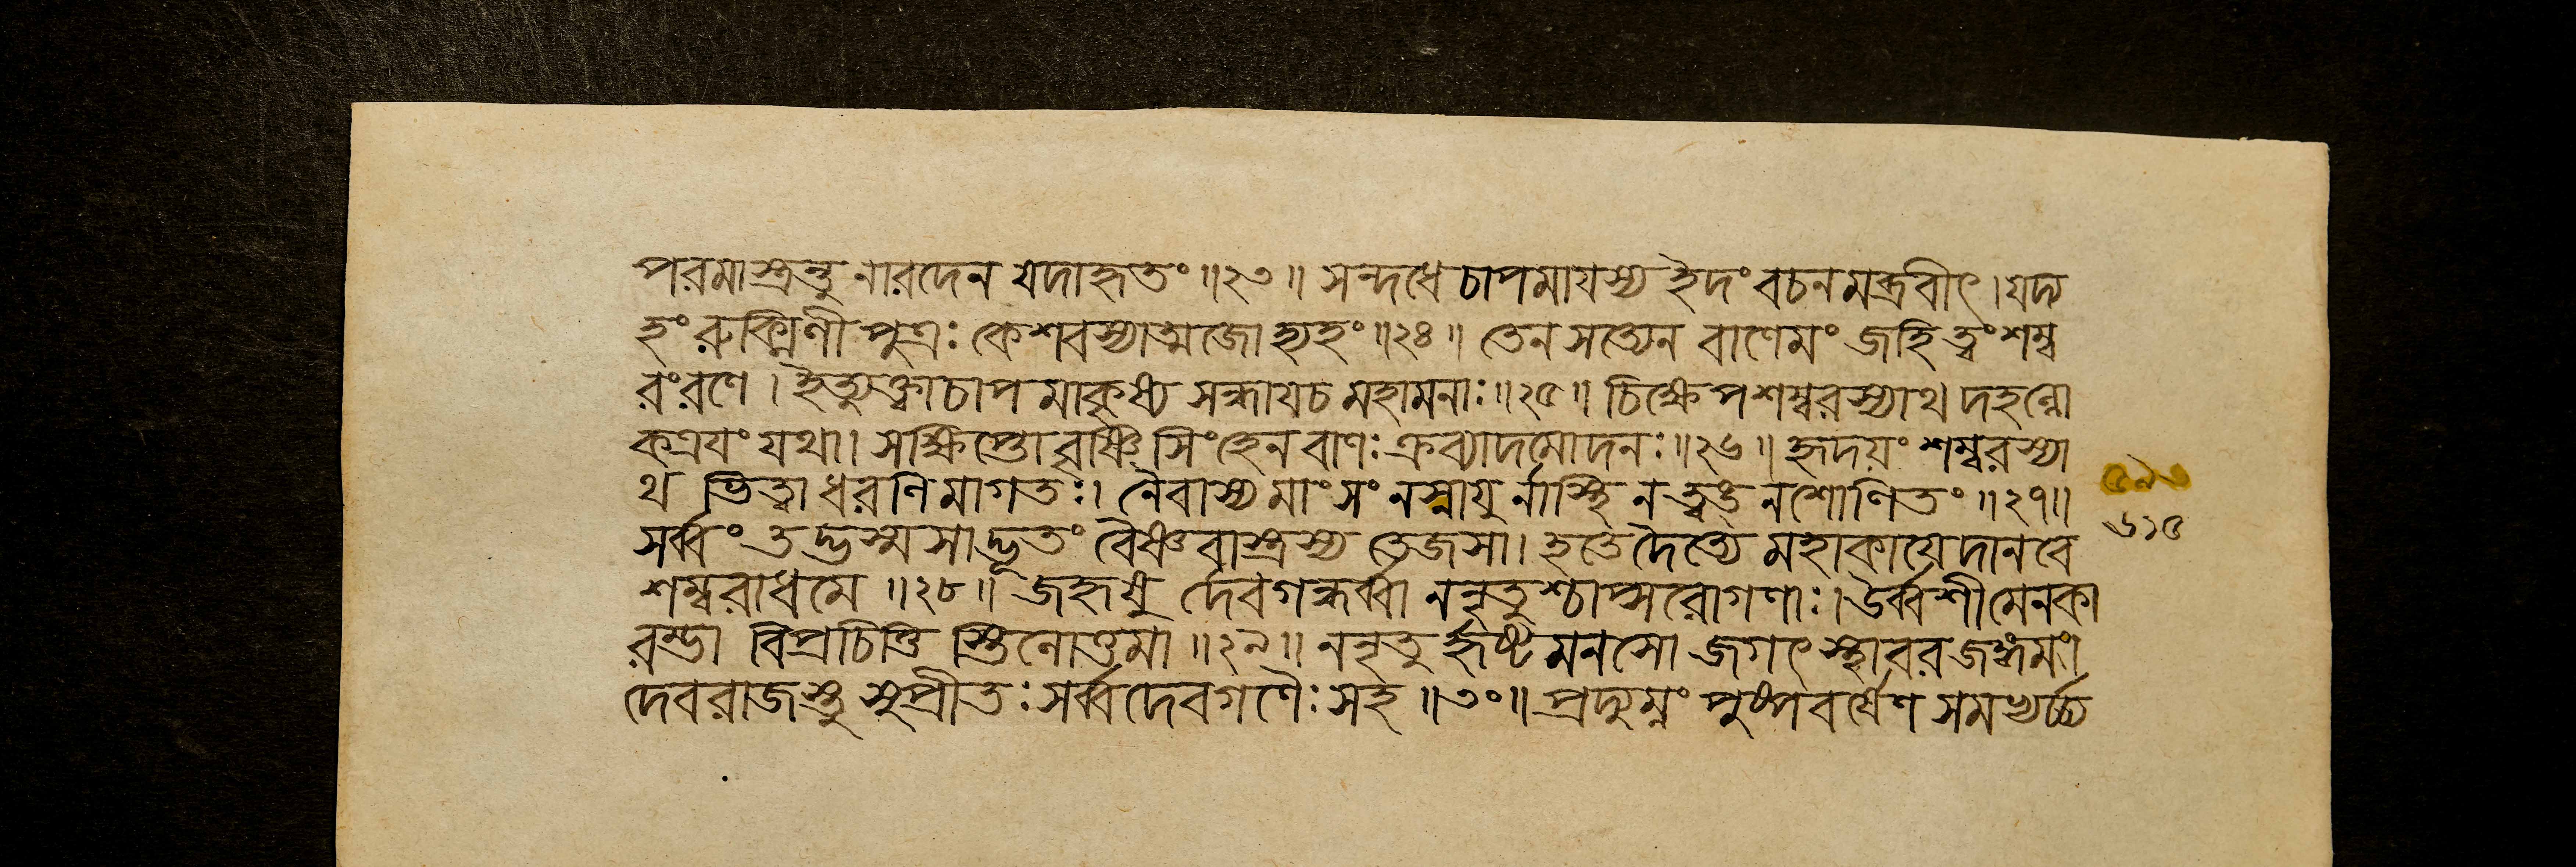 পরমাস্ত্রন্তু নারদেন যদাহৃতং ॥২৩॥ সন্দধে চাপমাযস্য ইদং বচনমব্রবীৎ।যদ্য
হং রুক্মিণী পুত্রঃ কেশবস্যাত্মজো হ্যহং॥২৪॥ তেন সত্যেন বাণেমং জহি ত্বং শম্ব
রংরণে । ইত্যুক্ত্বাচাপ মাকৃষ্য সন্ধাযচ মহামনাঃ॥২৫॥ চিক্ষেপশম্বরস্যাথ দহন্নো
কত্রযং যথা। সক্ষিপ্তো বৃষ্ণিসিংহেন বাণঃ ক্রব্যাদমোদনঃ॥২৬॥ হৃদয়ং শম্বরস্যা
থ ভিত্বা ধরণিমাগতঃ। নৈবাস্য মাংসং নস্নাযু র্নাস্থি নত্বঙ্ নশোণিতং ॥২৭॥
সর্ব্বং তদ্ভস্মসাদ্ভূতং বৈষ্ণবাস্ত্রস্য তেজসা। হতে দৈত্যে মহাকায়ে দানবে
শম্বরাধমে ॥২৮॥ জহৃষু র্দেবগন্ধর্ব্বা ননৃতুশ্চাপ্সরোগণাঃ।উর্ব্বশীমেনকা
রম্ভা বিপ্রচিত্তি স্তিলোত্তমা ॥২৯॥ ননৃতু র্হৃষ্টমনসো জগৎ স্থাবরজঙ্গমং।
দেবরাজস্তু সুপ্রীতঃ সর্ব্বদেবগণৈঃ সহ ॥৩০॥ প্রদ্যুম্নং পুষ্পবর্ষেণ সমভ্যর্চ্চ্য
৬১৫